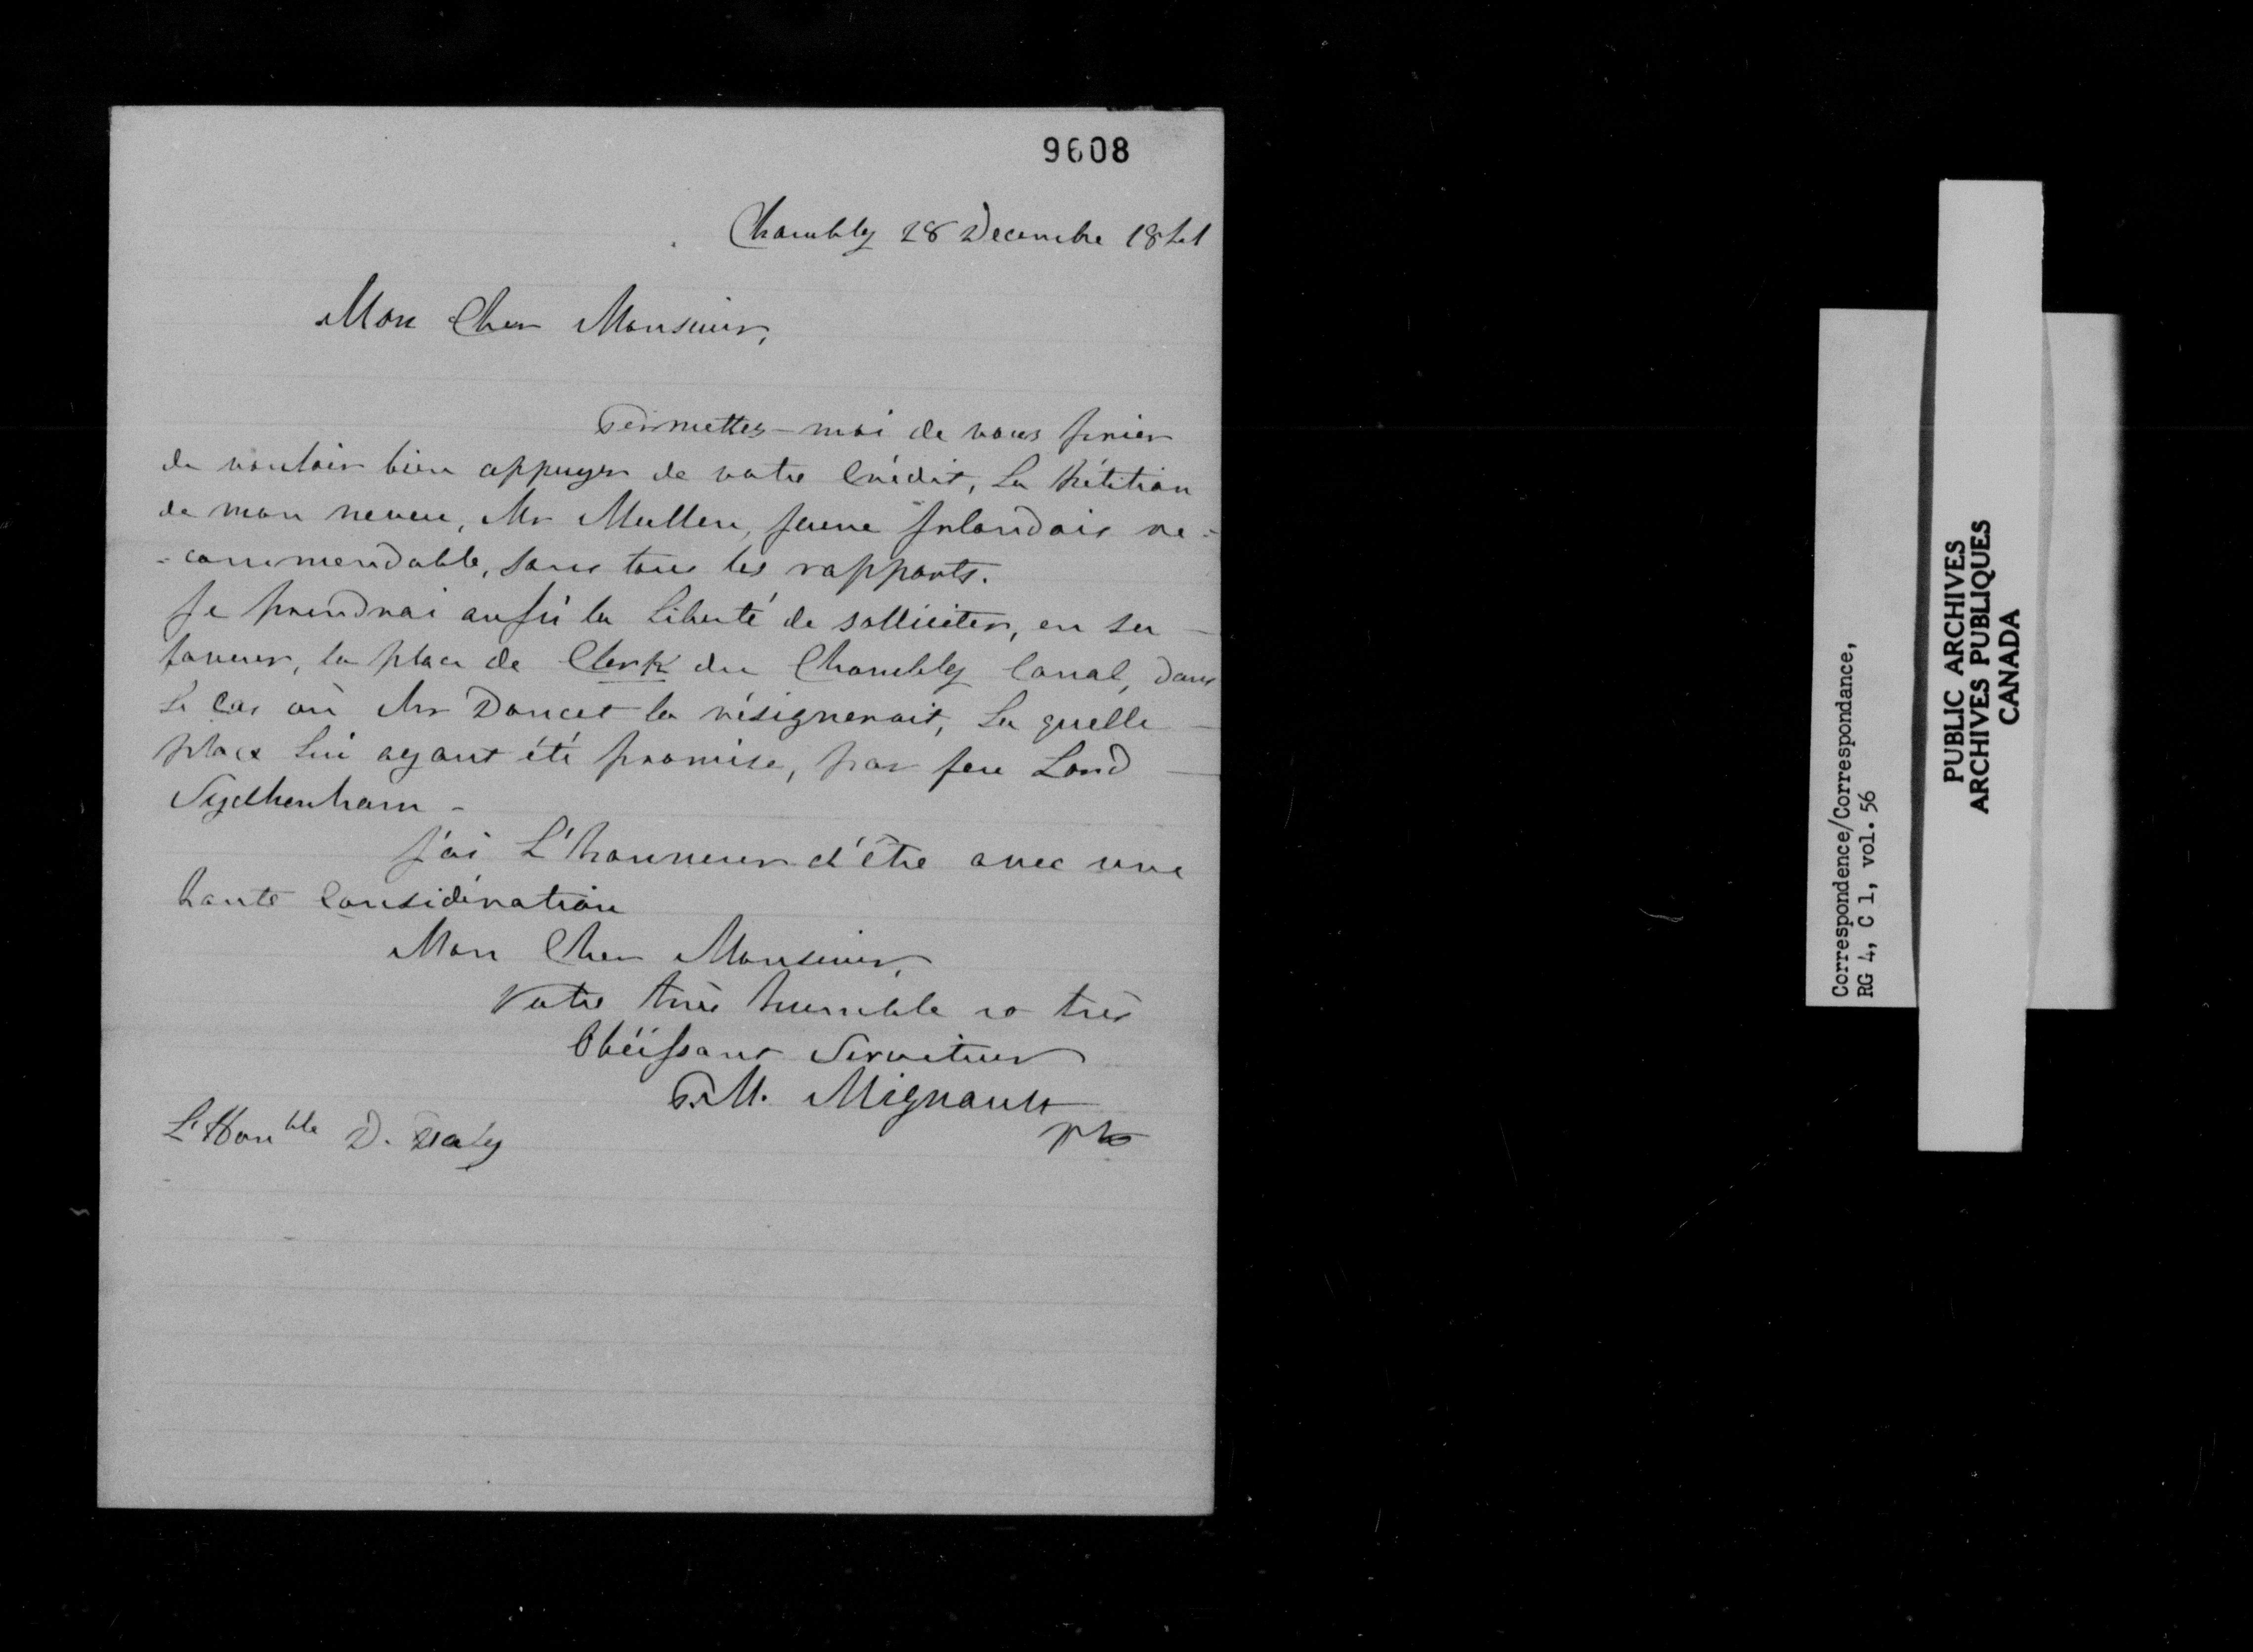 9608
Chambly 28 Decembre 1841
Mon Cher Monsieur,
Permettez-moi de vous prier
de vouloir bien appuyer de votre Crédit, La Pétition
de mon neveu, Mr Mullen, jeune Irlandais re=
=commendable, sous tous les rapports.
Je prendrai aussi la Liberté de solliciter, en sa
faveur, la place de Clerk du Chambly Canal, dans
Le Cas où Mr Doucet la résignerait, La quelle
place Lui ayant été promise, par feu Lord
Sydhenham -
J'ai L'honneur d'être avec une
haute Considération
Mon Cher Monsieur,
Votre très humble & très
Obéissant Serviteur
P.M. Mignault
Ptre
L'Honble D. Daly
Correspondence/Correspondance,
RG 4, C 1, vol. 56
PUBLIC ARCHIVES
ARCHIVES PUBLIQUES
CANADA